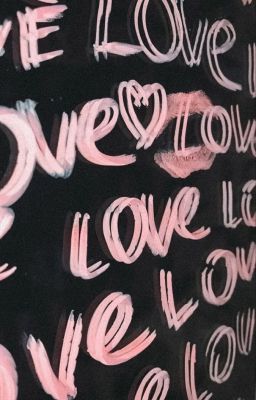 VE LOVE
ove ♡ LOVE
LOVE LO
OVE LOVE
LOVE LO